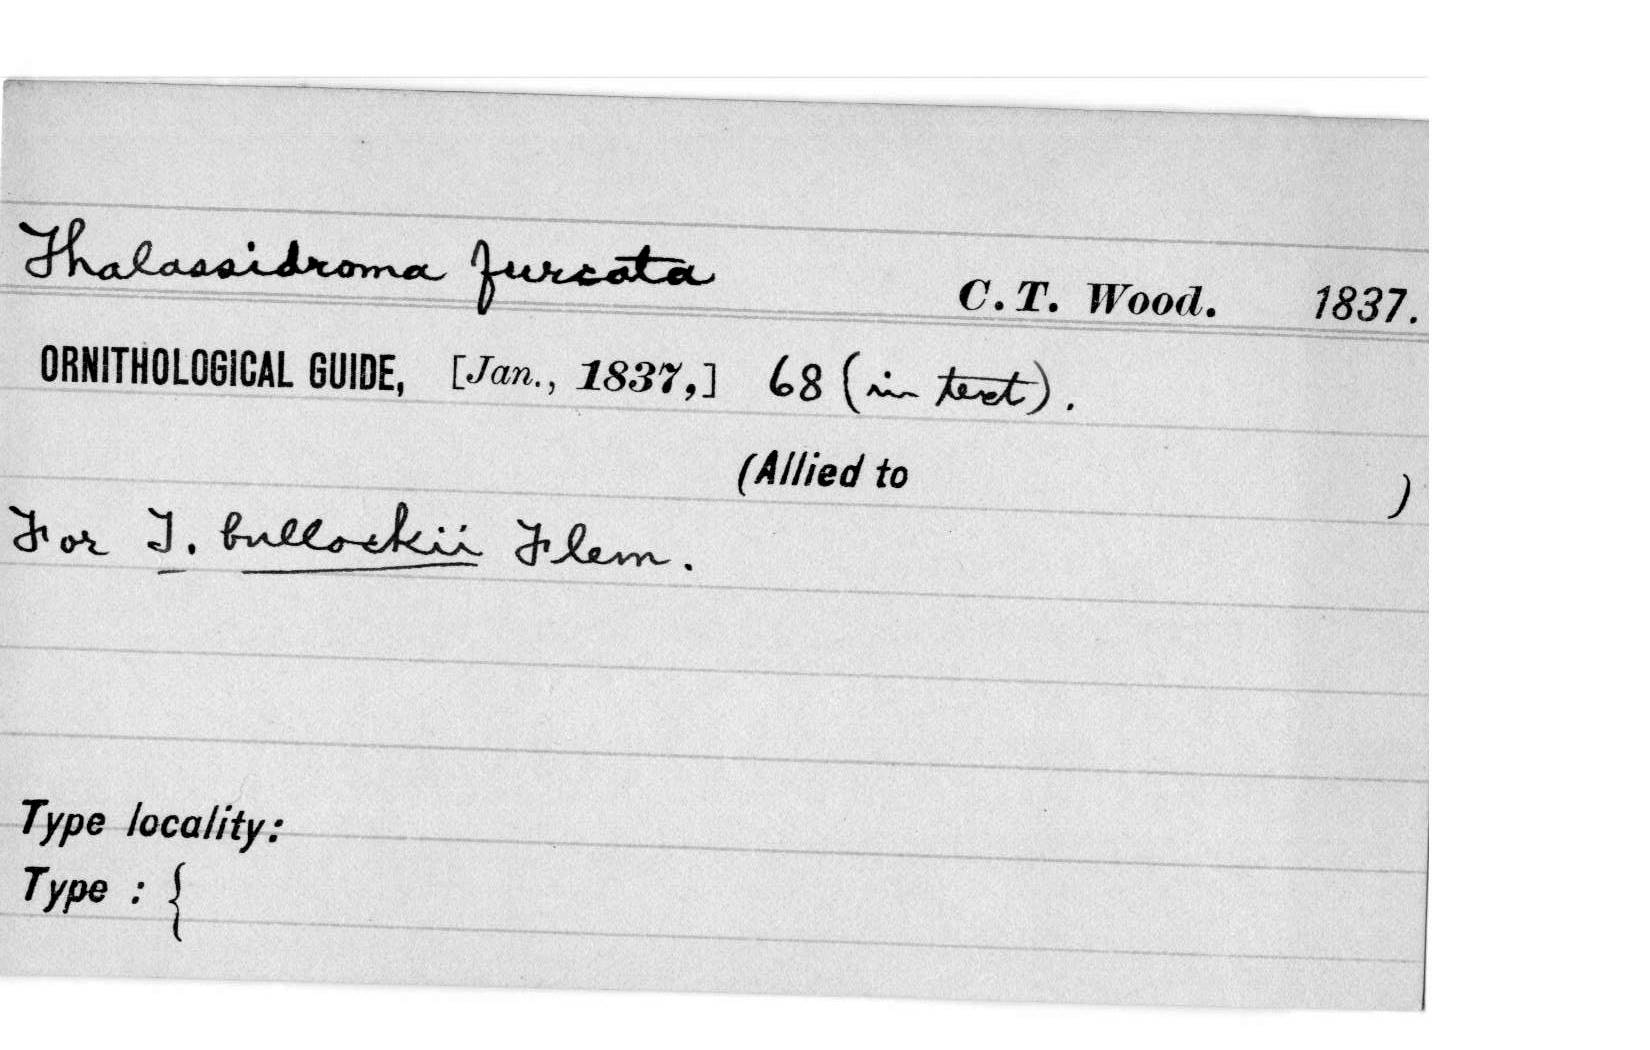 Thalassidroma furcata C. T. Wood. 1837.
ORNITHOLOGICAL GUIDE, [Jan., 1837,] 68 (in text).
(Allied to )
For T. bullockii Flem.
Type locality:
Type : {